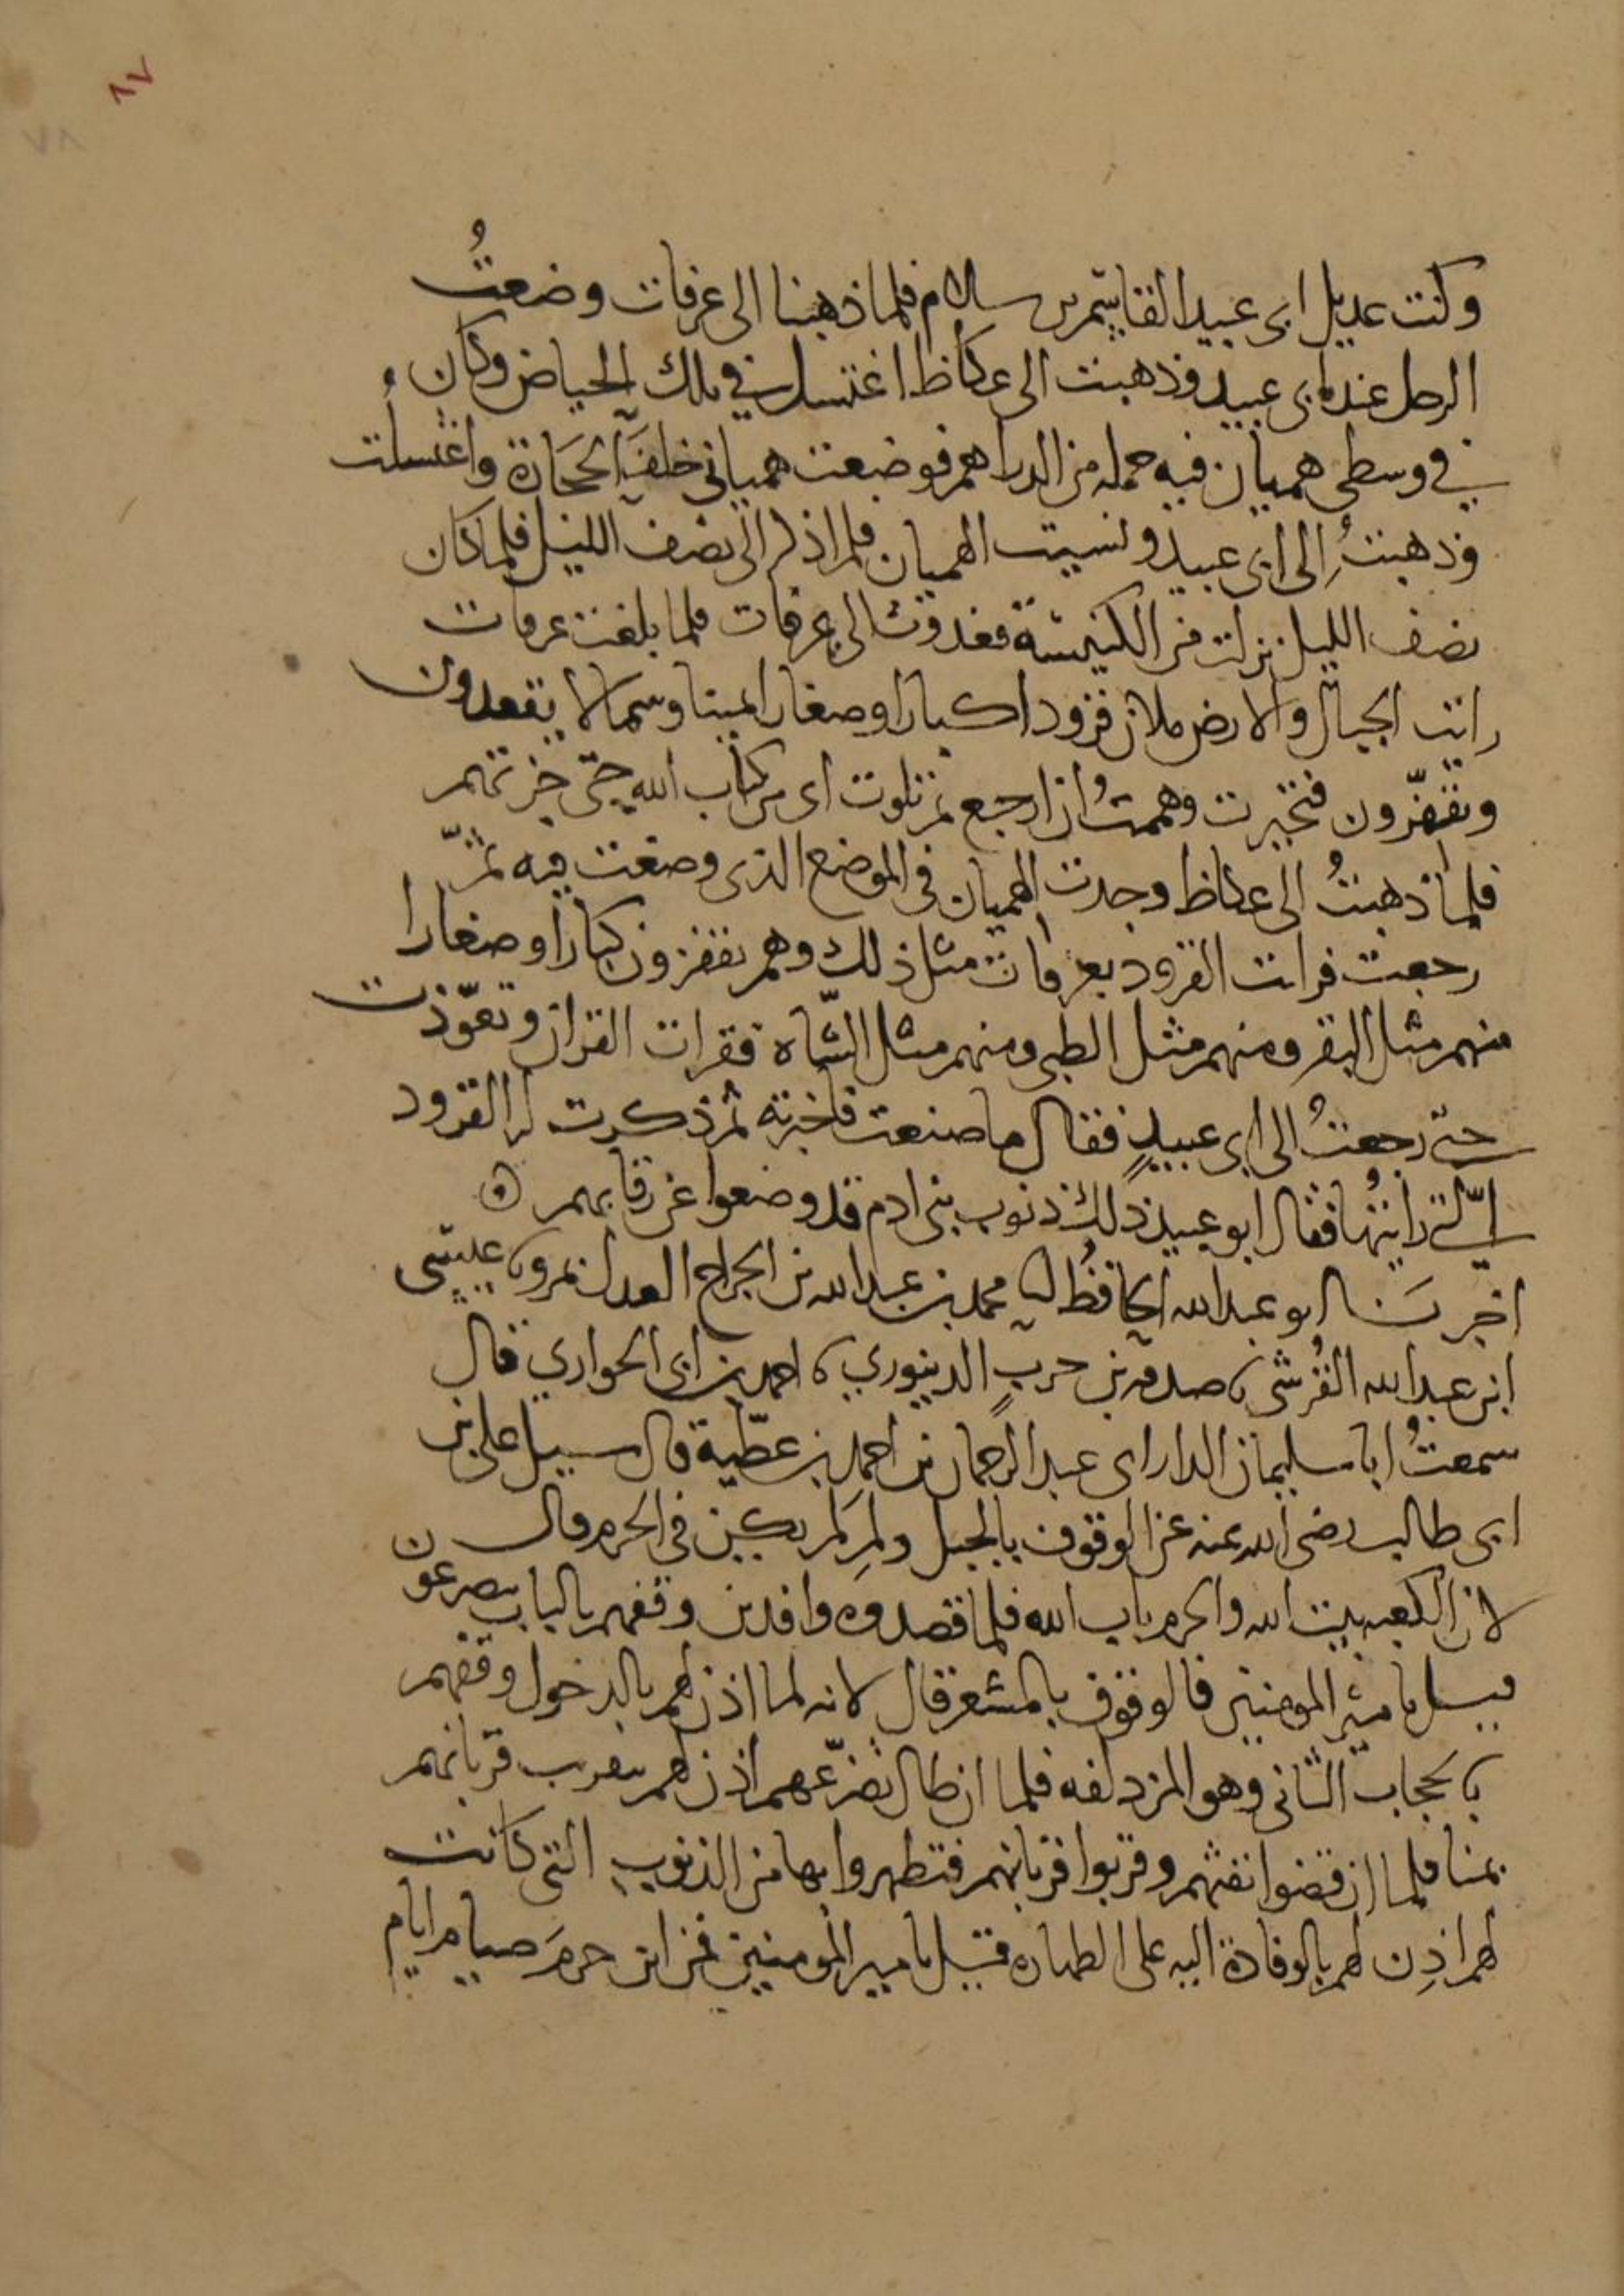 ٨٧
٨٧
وكنت عديل ابى عبيد القاسم بن سلام فلما ذهبنا الى عرفات وضعتُ
الرحل عند ابى عبيد وذهبت الى عكاظ اغتسل في تلك الحياض وكان
في وسطى هميان فيه جمله من الدراهم فوضعت هميانى خلف الحجَارة واغتسلتُ
وذهبتُ إلى ابى عبيد ونسيت الهميان فلم اذكر الى نصف الليل فلما كان
نصف الليل نزلت من الكنيسة فغدوت الى عرفات فلما بلغت عرفات
رايت الجبال والارض ملان قرودا كبارا وصغارا يمينا وشمالا يقعدون
ويقفزون فتحيرت وهممتُ ان ارجع ثم تلوت اى من كتاب الله حتى جزتهم
فلما ذهبتُ الى عكاظ وجدت الهميان فى الموضع الذى وضعت فيه ثمّ
رجعت فرايت القرود بعرفات مثل ذلك وهم يقفزون كبارا وصغارا
منهم مثل البقر ومنهم مثل الظبى ومنهم مثل الشّاة فقرات القران وتعوّذت
حتى رجعتُ الى ابى عبيدٍ فقال ما صنعت فاخبرته ثم ذكرت له القرود
الّتى رايتُها فقال ابو عبيد ذلك ذنوب بنى ادم قد وضعوا عن رقابهم
اخبرنَا ابو عبد الله الحافظُ نا محمد بن عبد الله بن الجراح العدل بمرو نا عيسى
ابن عبد الله القُرشى نا صدقه بن حربٍ الدينوري نا احمد بن ابى الحواري قال
سمعتُ ابا سليمان الدارانى عبد الرحمان بن احمد بن عطيّة قال سيل على بن
ابى طالب رضى الله عنه عن الوقوف بالجبل ولِمَ لم يكن فى الحرم قال
لان الكعبه بيت الله والحرم باب الله فلما قصدوه وافدين وقفهم بالباب يتضرعون
قيل يا امير المومنين فالوقوف بالمشعر قال لانه لما اذن لهم بالدخول وقفهم
بالحجاب الثانى وهو المزدلفه فلما ان طال تضرّعهم اذن لهم بتقريب قربانهم
بمنا فلما ان قضوا تفثهم وقربوا قربانهم فتطهروا بها من الذنوب التى كانت
لهم اذِن لهم بالوفادة اليه على الطهاره قيل يا امير المومنين فمن اين حرمَ صيام ايام